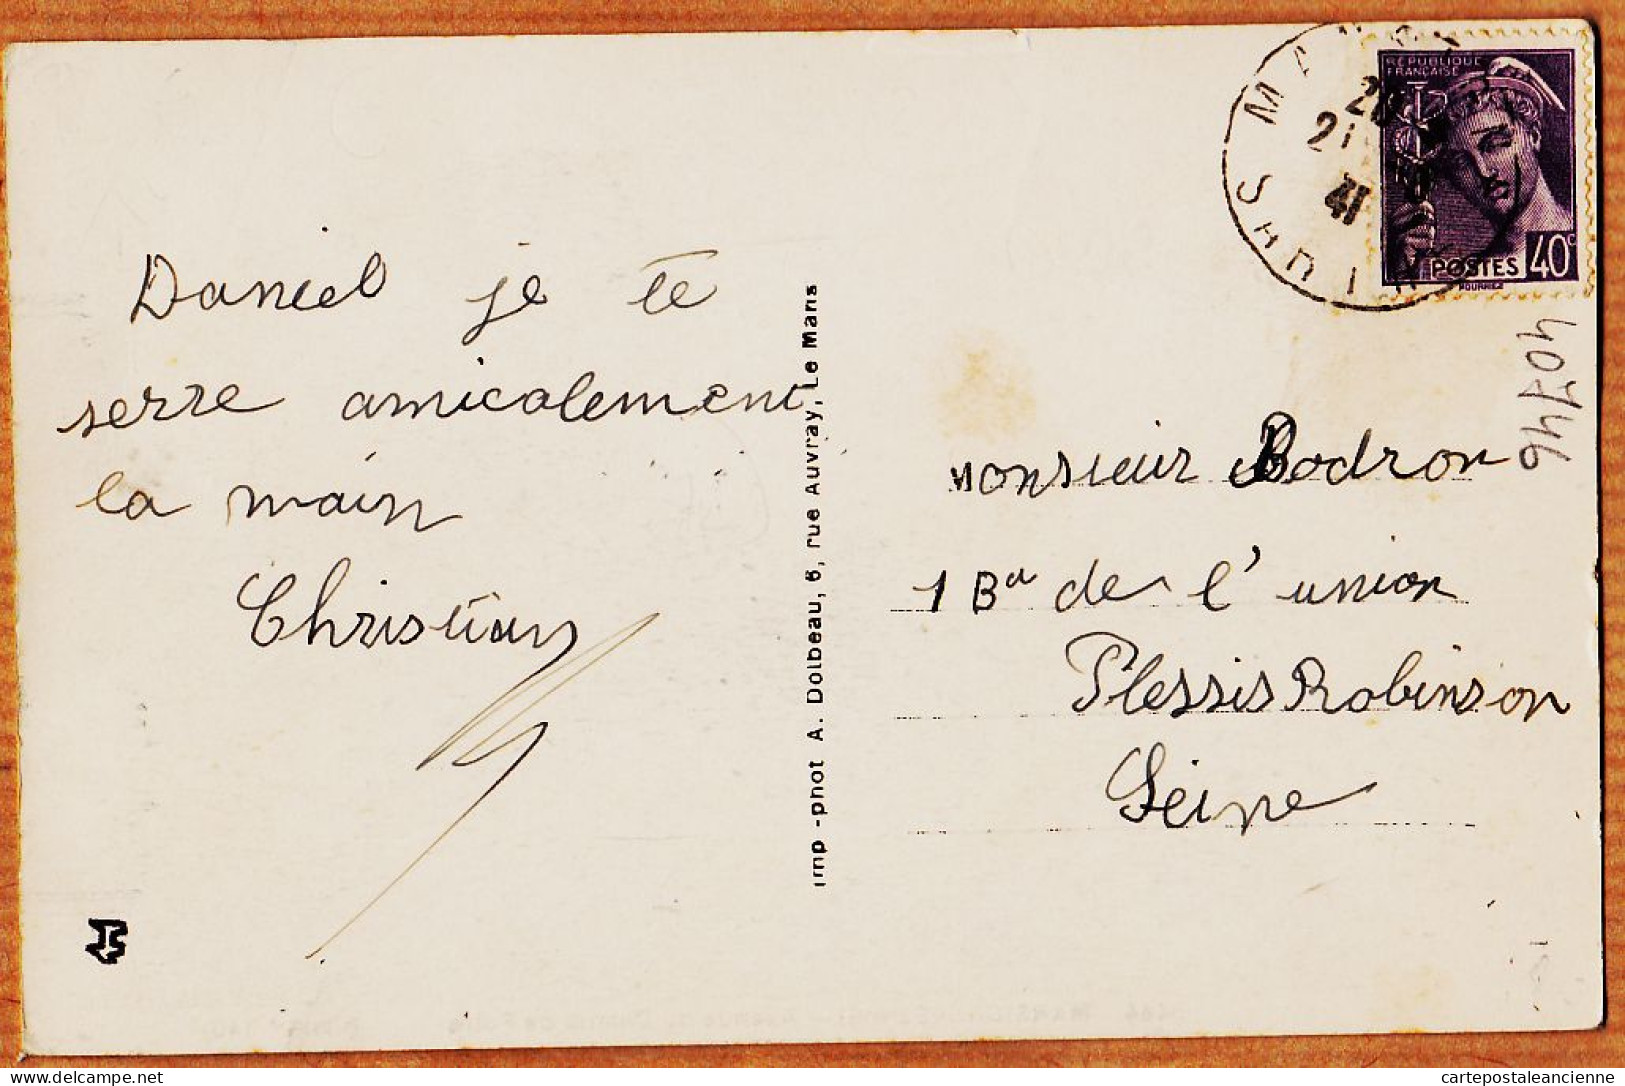 Daniel je te
serre amicalement
la main
Christian
imp -phot A. Dolbeau, 6, rue Auvray, Le Mans
RÉPUBLIQUE
FRANÇAISE
POSTES 40c
21
41
40746
Monsieur Bodron
1 Bd de l'union
Plessis Robinson
Seine
cartepostaleancienne
delcampe.net